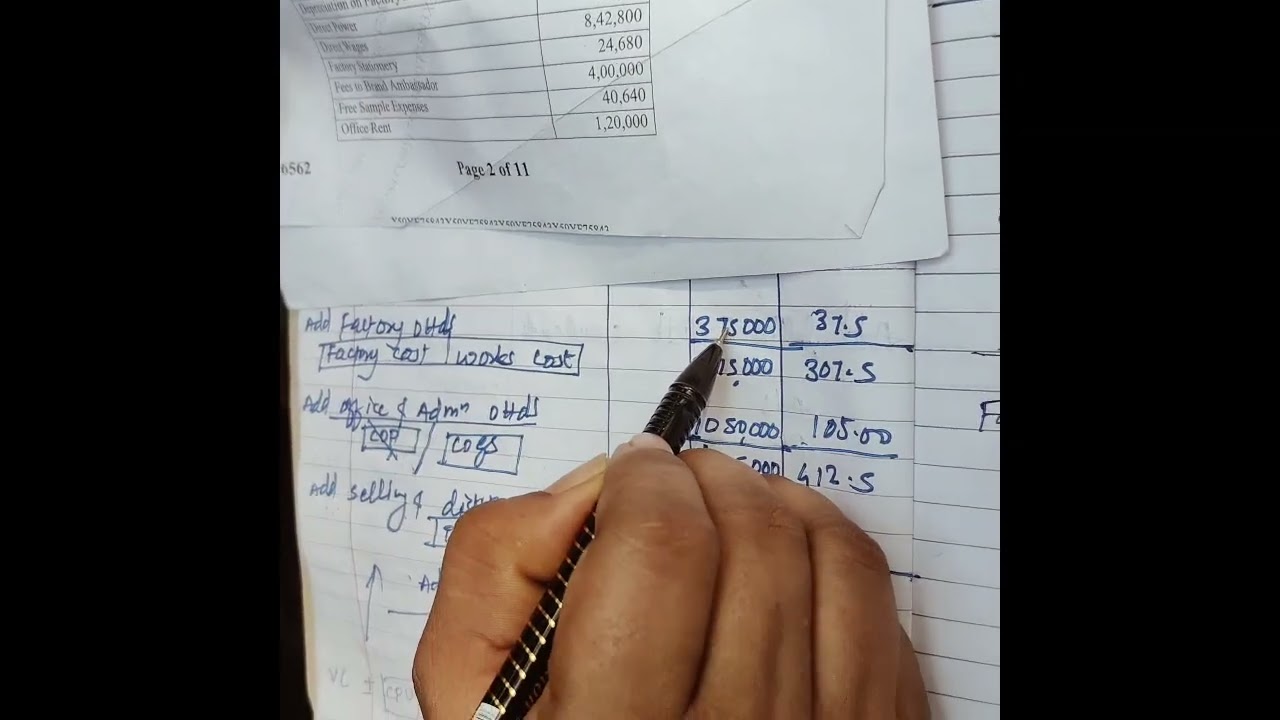 Depreciation on Factory
Direct Power 8,42,800
Direct Wages 24,680
Factory Stationery 4,00,000
Fees to Brand Ambassador 40,640
Free Sample Expenses 1,20,000
Office Rent
6562 Page 2 of 11
Add Factory OHds 375000 37.5
Factory cost works cost 15000 307.5
Add office & Admn OHds 1050000 105.00
COP / COGS 000 412.5
Add selling &